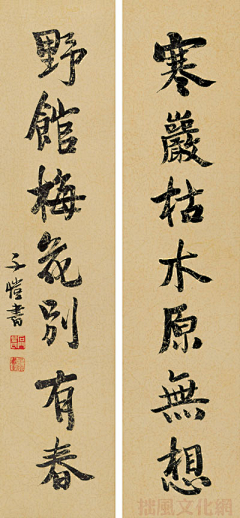 寒巖枯木原無想
野館梅花別有春
子愷書
拙風文化網